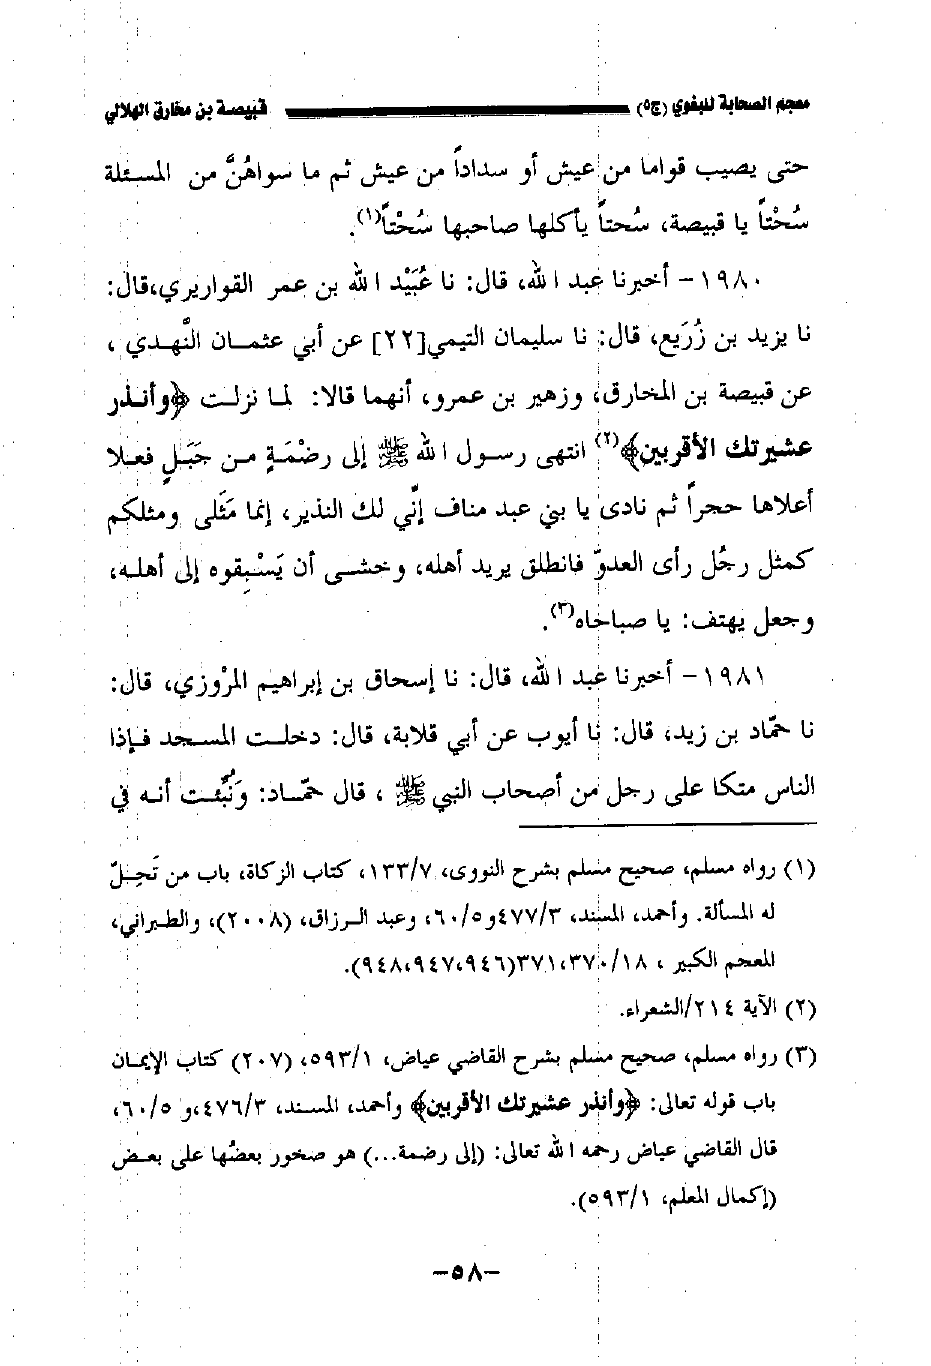 معجم الصحابة للبغوي (ج٥) قبيصة بن مخارق الهلالي
حتى يصيب قواما من عيش أو سداداً من عيش ثم ما سواهُنَّ من المسئلة
سُحْتاً يا قبيصة، سُحتاً يأكلها صاحبها سُحْتاً(١).
١٩٨٠- أخبرنا عبد الله، قال: نا عُبَيْد الله بن عمر القواريري،قال:
نا يزيد بن زُرَيع، قال: نا سليمان التيمي[٢٢] عن أبي عثمان النَّهدي ،
عن قبيصة بن المخارق، وزهير بن عمرو، أنهما قالا: لما نزلت ﴿وأنذر
عشيرتك الأقربين﴾(٢) انتهى رسول الله ﷺ إلى رضْمَةٍ من جَبَلٍ فعلا
أعلاها حجراً ثم نادى يا بني عبد مناف إنّي لك النذير، إنما مَثَلى ومثلكم
كمثل رجُل رأى العدوّ فانطلق يريد أهله، وخشى أن يَسْبِقوه إلى أهله،
وجعل يهتف: يا صباحاه(٣).
١٩٨١- أخبرنا عبد الله، قال: نا إسحاق بن إبراهيم المرْوزي، قال:
نا حمّاد بن زيد، قال: نا أيوب عن أبي قلابة، قال: دخلت المسجد فإذا
الناس متكا على رجل من أصحاب النبي ﷺ ، قال حمّاد: وَنُبِّئت أنه في
(١) رواه مسلم، صحيح مسلم بشرح النووى، ١٣٣/٧، كتاب الزكاة، باب من تَحِلّ
له المسألة. وأحمد، المسند، ٤٧٧/٣و٦٠/٥، وعبد الرزاق، (٢٠٠٨)، والطبراني،
المعجم الكبير ، ٣٧١،٣٧٠/١٨(٩٤٨،٩٤٧،٩٤٦).
(٢) الآية ٢١٤/الشعراء.
(٣) رواه مسلم، صحيح مسلم بشرح القاضي عياض، ٥٩٣/١، (٢٠٧) كتاب الإيمان
باب قوله تعالى: ﴿وأنذر عشيرتك الأقربين﴾ وأحمد، المسند، ٤٧٦/٣،و ٦٠/٥،
قال القاضي عياض رحمه الله تعالى: (إلى رضمة...) هو صخور بعضُها على بعض
(إكمال المعلم، ٥٩٣/١).
-٥٨-